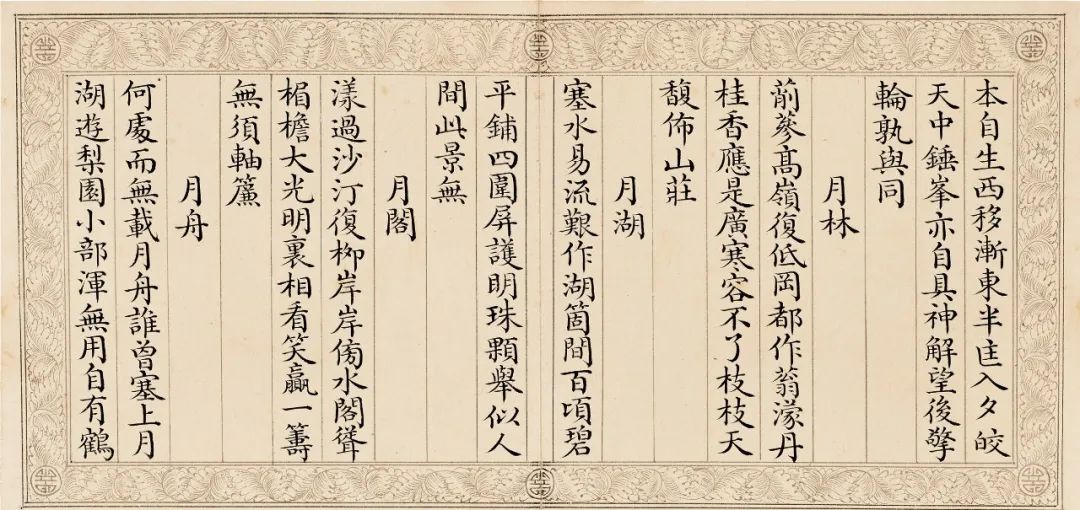 本自生西移漸東半匡入夕皎
天中錘峯亦自具神解望後擎
輪孰與同
月林
萷蔘高嶺復低岡都作蓊濛丹
桂香應是廣寒容不了枝枝天
馥佈山莊
月湖
塞水易流艱作湖箇間百頃碧
平鋪四圍屏護明珠顆舉似人
間此景無
月閣
漾過沙汀復柳岸岸傍水閣聳
楣檐大光明裏相看笑贏一籌
無須軸簾
月舟
何處而無載月舟誰曾塞上月
湖遊梨園小部渾無用自有鶴